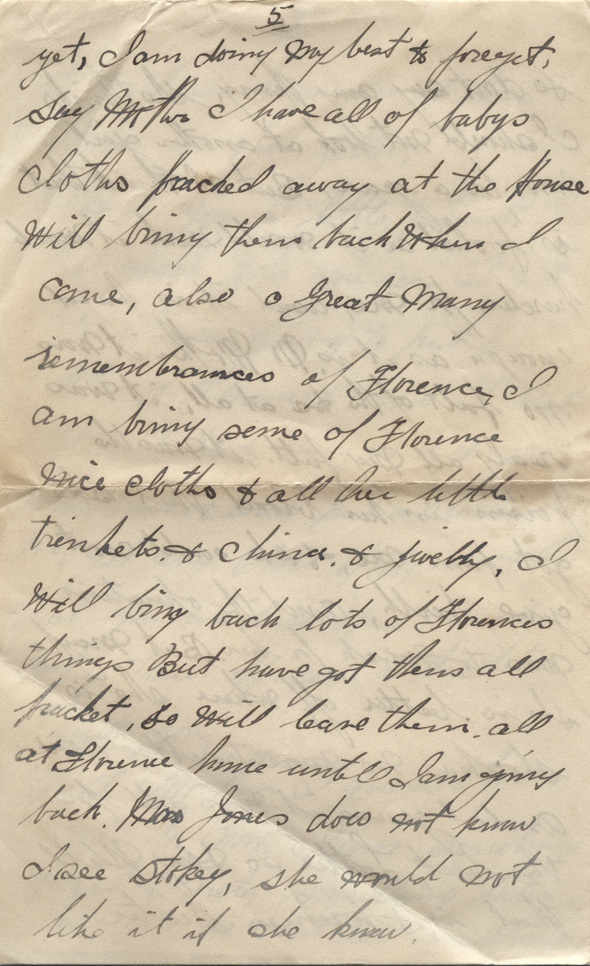 5
yet, I am doing My best to foreget,
say Mother I have all of babys
cloths packed away at the House
Will bring them back When I
come, also a Great Many
remembrances of Florence, I
am bring some of Florence
Nice cloths & all her little
trinkets. & china. & jwelly, I
Will bing back lots of Florences
things But have got them all
packet, so Will leave them. all
at Florence home until I am going
back. Mrs Jones does not know
I see stokey, she would not
like it if she knew.